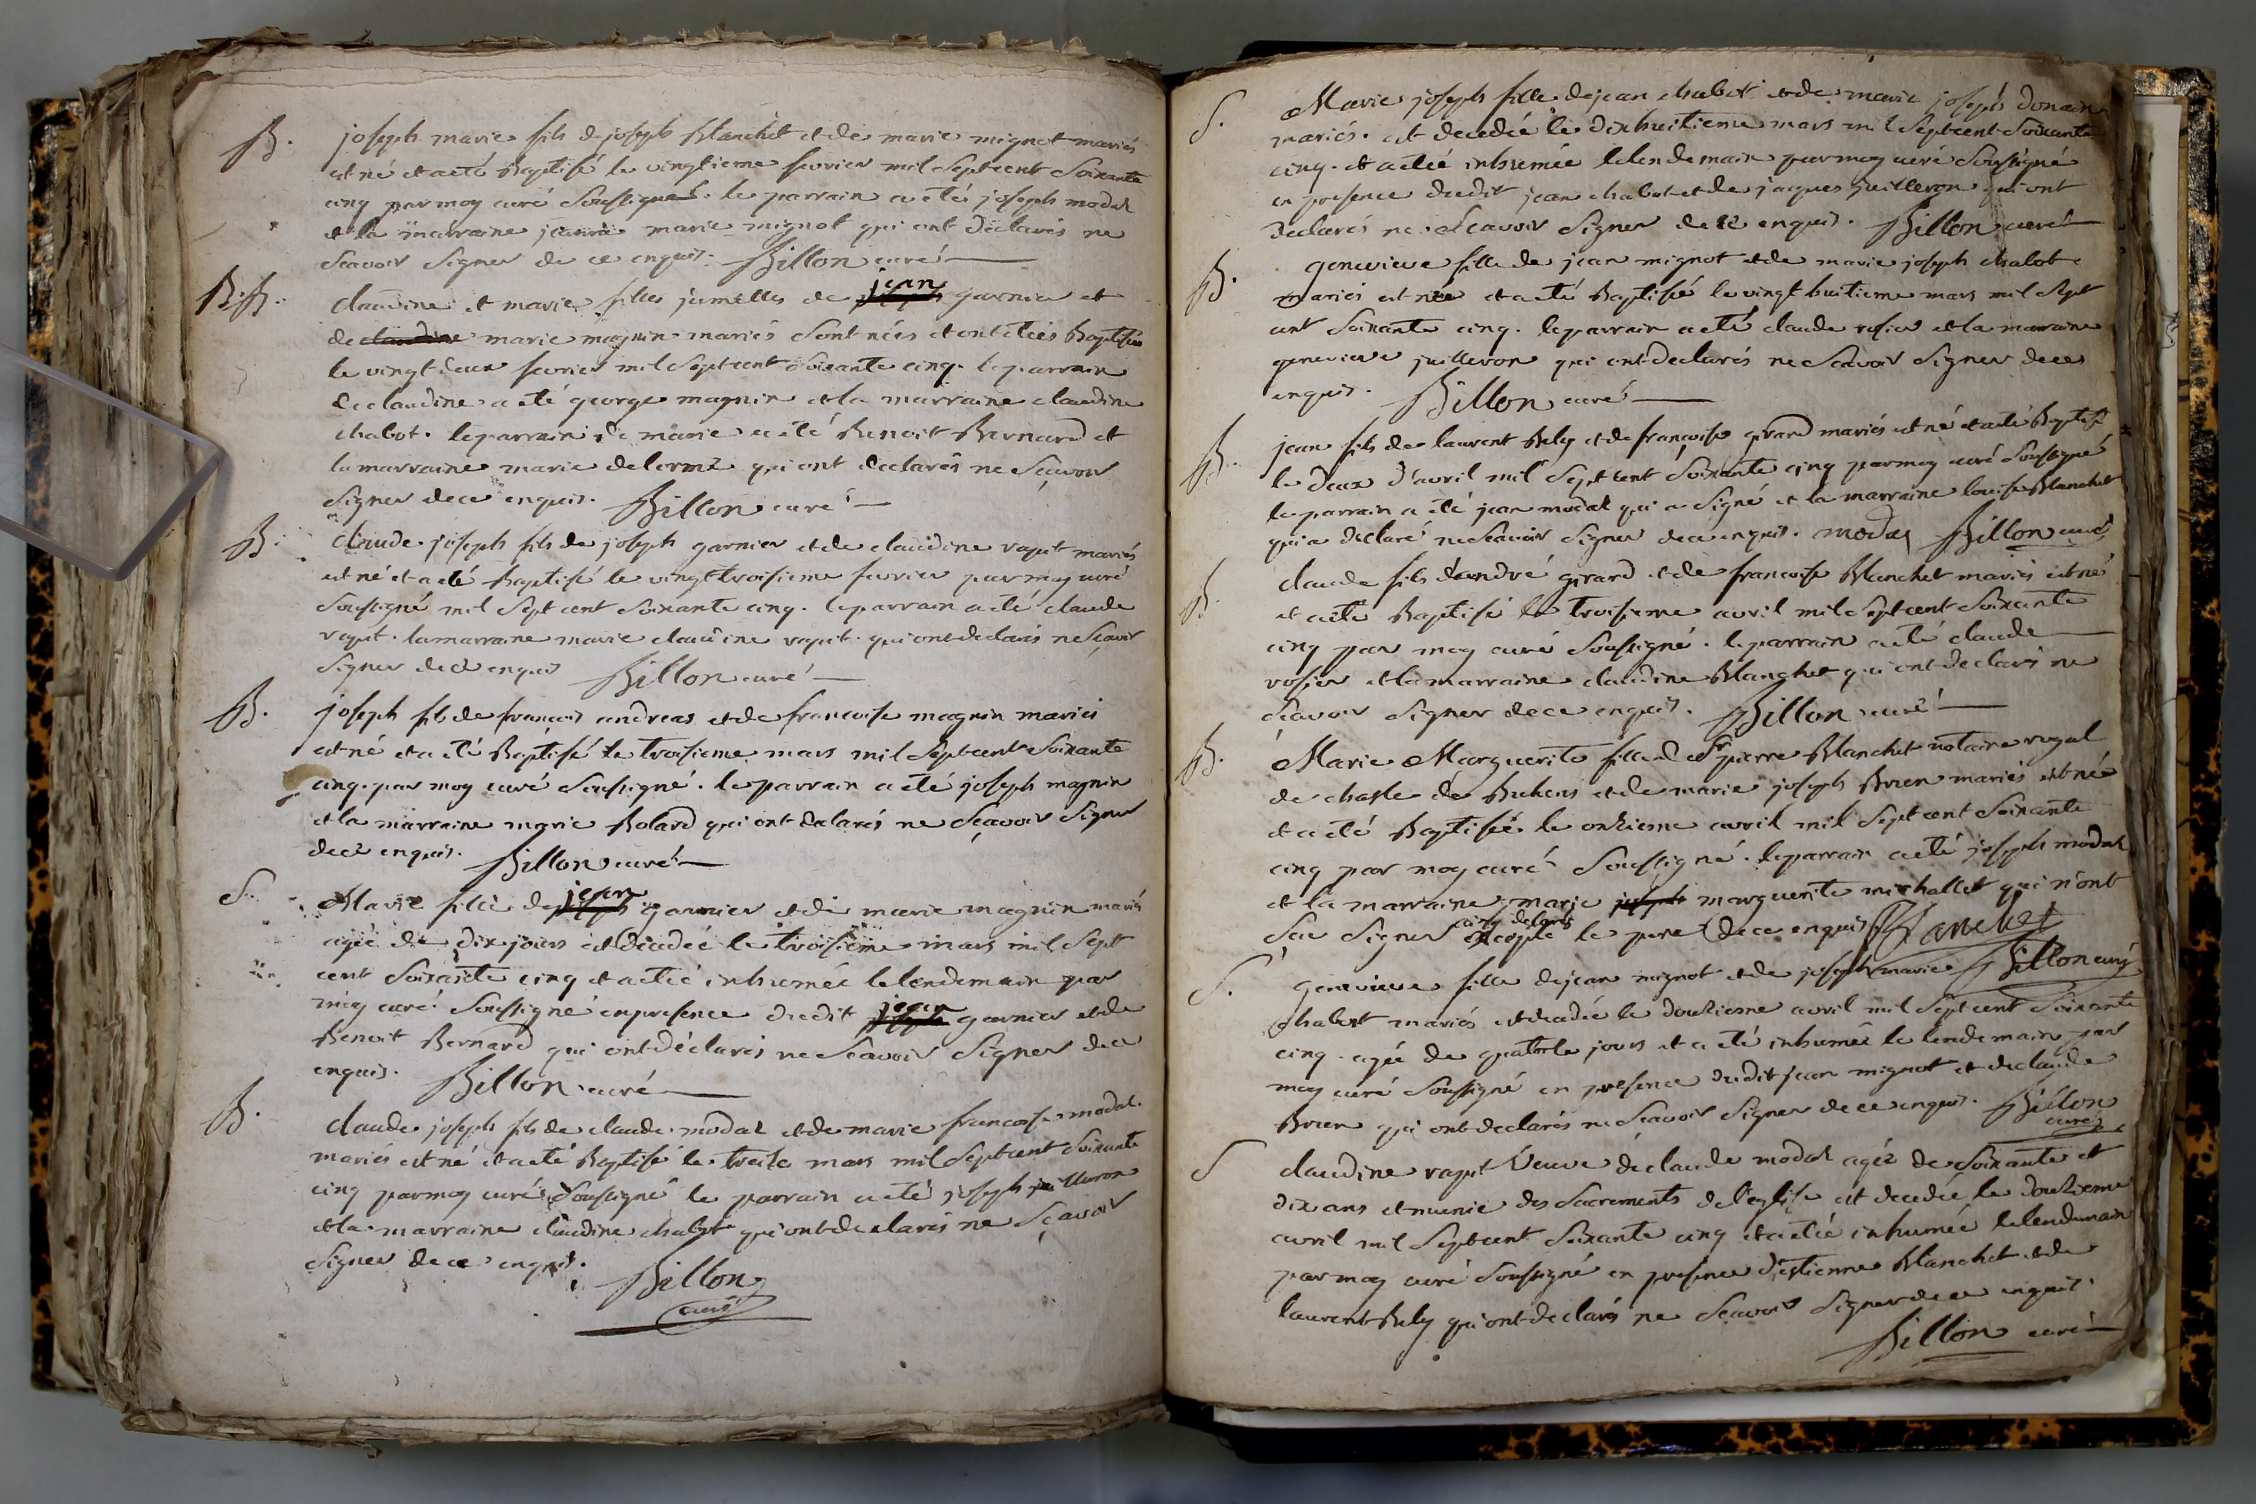 B. joseph marie fils de joseph Blanchet et de marie mignot mariés
est né et a eté Baptisé le vingtieme fevrier mil sept cent soixante
cinq par moy curé soussigné. le parrain a eté joseph modas
et la marraine jeanne marie mignot qui ont déclarés ne
scavoir signer de ce enquis. Billon curé
B.B. claudine et marie filles jumelles de joseph jean garnier et
de claudine marie magnin mariés sont nées et ont etées Baptisées
le vingt deux fevrier mil sept cent soixante cinq. le parrain
de claudine a eté george magnin et la marraine claudine
chabot. le parrain de marie a eté Benoit Bernard et
la marraine marie delorme qui ont declarés ne scavoir
signer de ce enquis. Billon curé
B. claude joseph fils de joseph garnier et de claudine raput mariés
est né et a eté Baptisé le vingt troisieme fevrier par moy curé
soussigné mil sept cent soixante cinq. le parrain a eté claude
raput. la marraine marie claudine raput. qui ont declarés ne scavoir
signer de ce enquis Billon curé
B. joseph fils de francois andreas et de francoise magnin mariés
est né et a eté Baptisé le troisieme mars mil sept cent soixante
cinq. par moy curé soussigné. le parrain a eté joseph magnin
et la marraine marie Bolard qui ont declarés ne scavoir signer
de ce enquis. Billon curé
S. Marie fille de joseph jean garnier et de marie magnin mariés
agée de dix jours est decedée le troisieme mars mil sept
cent soixante cinq et a eté inhumée le lendemain par
moy curé soussigné en presence du dit joseph jean garnier et de
Benoit Bernard qui ont déclarés ne scavoir signer de ce
enquis. Billon curé
B. claude joseph fils de claude modas et de marie francoise modas
mariés est né et a eté Baptisé le treize mars mil sept cent soixante
cinq par moy curé soussigné le parrain a eté joseph juilleron
et la marraine claudine chabot qui ont declarés ne scavoir
signer de ce enquis.
Billon
curé
S. Marie joseph fille de jean chabot et de marie joseph Donain
mariés. est decedée le dixhuitieme mars mil sept cent soixante
cinq. et a etée inhumée le lendemain par moy curé soussigné
en presence du dit jean chabot et de jacques juilleron qui ont
declarés ne scavoir signer de ce enquis. Billon curé
B. genevieve fille de jean mignot et de marie joseph chabot
mariés est née et a eté Baptisée le vingt huitieme mars mil sept
cent soixante cinq. le parrain a eté claude rosier et la marraine
genevieve juilleron qui ont declarés ne scavoir signer de ce
enquis. Billon curé
B. jean fils de laurent Bely et de françoise girard mariés est né et a eté Baptisé
le deux d'avril mil sept cent soixante cinq par moy curé soussigné
le parrain a eté jean modas qui a signé et la marraine louise Blanchet
qui a declaré ne scavoir signer de ce enquis. modas Billon curé
B. claude fils d'andré girard et de francoise Blanchet mariés est né
et a eté Baptisé le troisieme avril mil sept cent soixante
cinq par moy curé soussigné. le parrain a eté claude
rosier et la marraine claudine Blanchet qui ont declaré ne
scavoir signer de ce enquis. Billon curé
B. Marie Marguerite fille de Sr pierre Blanchet notaire royal
de chasle de Buhens et de marie joseph Brun mariés est née
et a eté Baptisée le onzieme avril mil sept cent soixante
cinq par moy curé soussigné. le parrain a eté joseph modas
et la marraine marie joseph marguerite michallet qui n'ont
scu signer excepté le pere de ce enquis Blanchet
Billon curé
S. genevieve fille de jean mignot et de joseph marie
chabot mariés est decedée le douzieme avril mil sept cent soixante
cinq. agée de quatorze jours et a eté inhumée le lendemain par
moy curé soussigné en presence du dit jean mignot et de claude
Brun qui ont declarés ne scavoir signer de ce enquis. Billon
curé
S claudine raput veuve de claude modas agée de soixante et
dix ans et munie des sacrements de l'eglise est decedée le douzieme
avril mil sept cent soixante cinq et a eté inhumée le lendemain
par moy curé soussigné en presence d'estienne Blanchet et de
laurent Bely qui ont declaré ne scavoir signer de ce enquis.
Billon curé